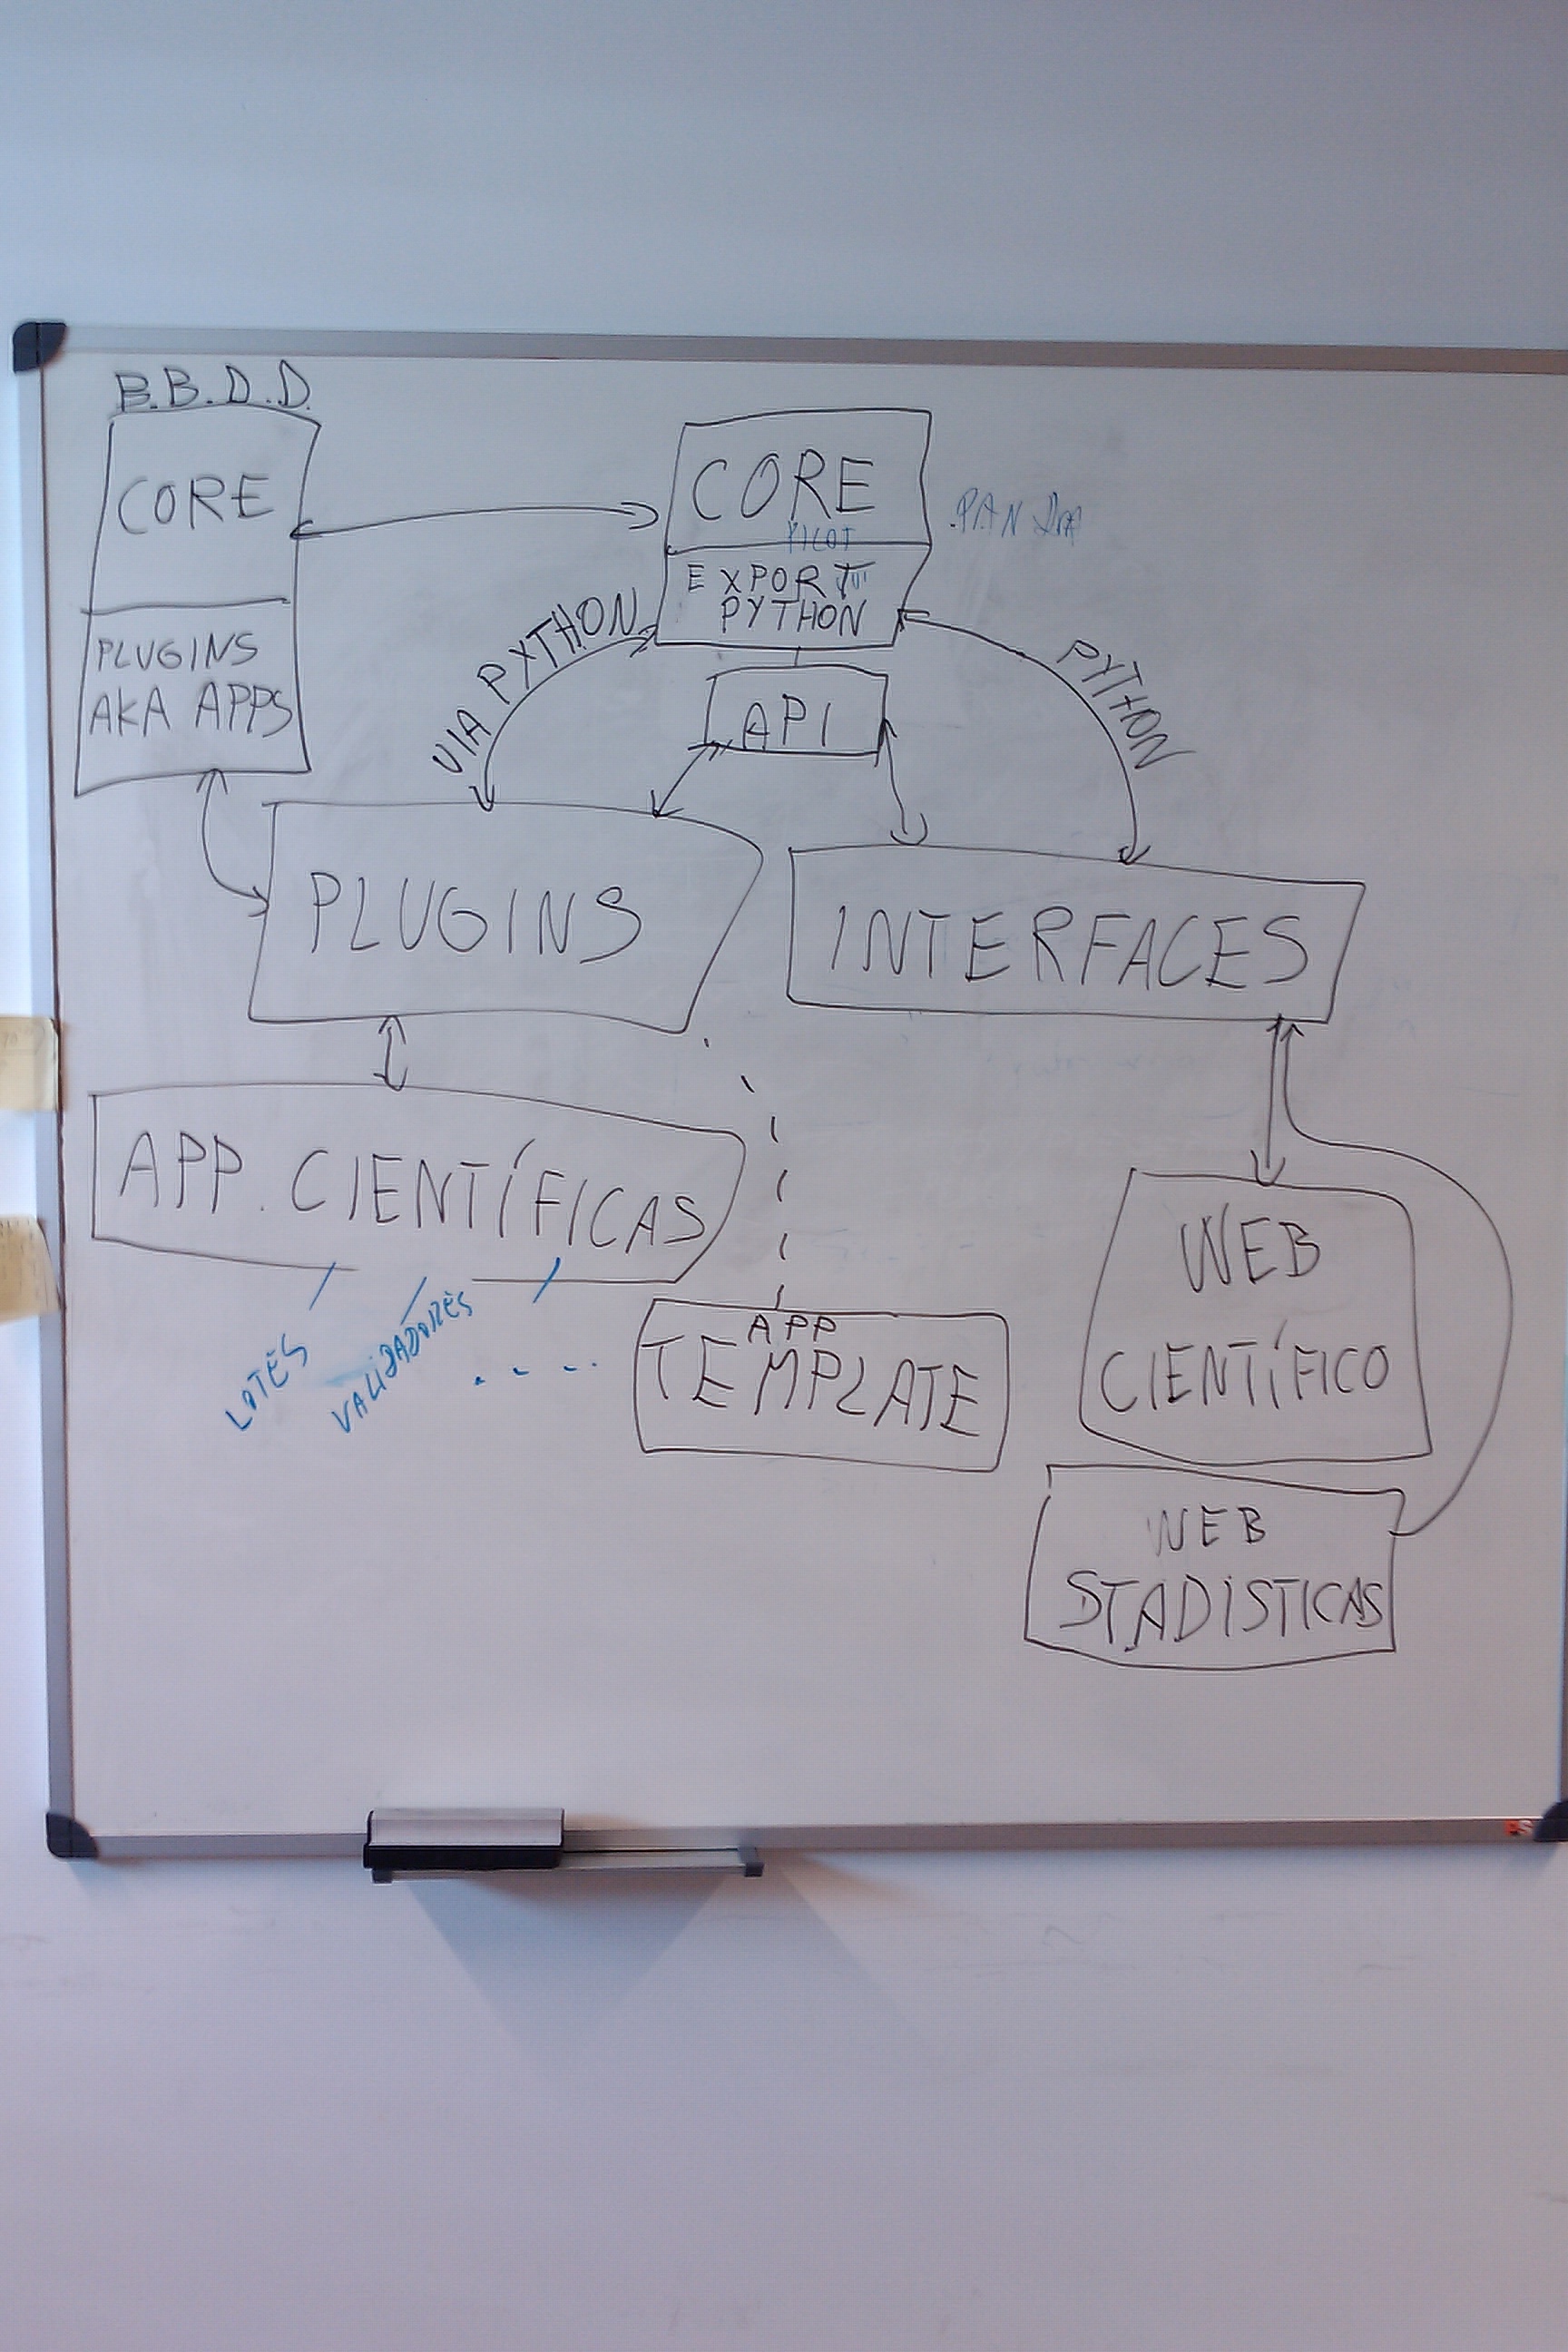 B.B.D.D.
CORE
PLUGINS
AKA APPS
CORE
EXPORT
PYTHON
API
VIA PYTHON
PYTHON
PLUGINS
INTERFACES
APP. CIENTÍFICAS
LOTES
VALIDADORES
....
APP
TEMPLATE
WEB
CIENTÍFICO
WEB
STADISTICAS